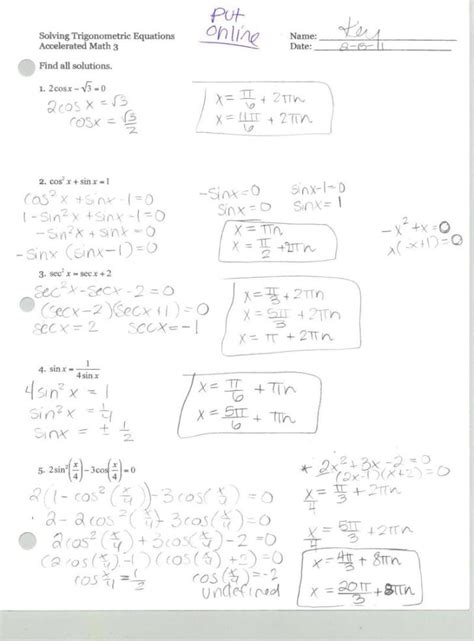 Put
online
Solving Trigonometric Equations
Accelerated Math 3
Name: Key
Date:
Find all solutions.
1. 2cosx − √3 = 0
2cos x = √3
cosx = √3/2
x = π/6 + 2πn
x = 11π/6 + 2πn
2. cos² x + sin x = 1
cos²x + sinx − 1 = 0
1 − sin²x + sinx − 1 = 0
−sin²x + sinx = 0
−sinx (sinx − 1) = 0
−sinx = 0
sinx = 0
sinx − 1 = 0
sinx = 1
x = πn
x = π/2 + 2πn
−x² + x = 0
x(−x+1) = 0
3. sec² x = sec x + 2
sec²x − secx − 2 = 0
(secx − 2)(secx + 1) = 0
secx = 2 secx = −1
x = π/3 + 2πn
x = 5π/3 + 2πn
x = π + 2πn
4. sin x = 1/(4 sin x)
4 sin²x = 1
sin²x = 1/4
sinx = ± 1/2
x = π/6 + πn
x = 5π/6 + πn
5. 2sin²(x/4) − 3cos(x/4) = 0
2(1 − cos²(x/4)) − 3cos(x/4) = 0
2 − 2cos²(x/4) − 3cos(x/4) = 0
2cos²(x/4) + 3cos(x/4) − 2 = 0
(2cos(x/4) − 1)(cos(x/4) + 2) = 0
cos x/4 = 1/2
cos(x/4) = −2
undefined
* 2x² + 3x − 2 = 0
(2x−1)(x+2) = 0
x/4 = π/3 + 2πn
x/4 = 5π/3 + 2πn
x = 4π/3 + 8πn
x = 20π/3 + 8πn